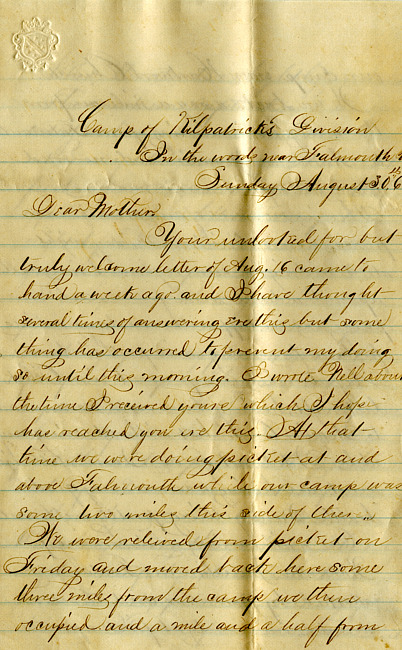 Camp of Kilpatrick's Division
In the woods near Falmouth
Sunday August 30th 6
Dear Mother
Your unlooked for but
truly welcome letter of Aug. 16 came to
hand a week ago and I have thought
several times of answering ere this but some
thing has occurred to prevent my doing
so until this morning. I wrote Nell about
the time I received yours which I hope
has reached you ere this. At that
time we were doing picket at and
above Falmouth while our camp was
some two miles this side of there.
We were releived from picket on
Friday and moved back here some
three miles from the camp we then
occupied and a mile and a half from